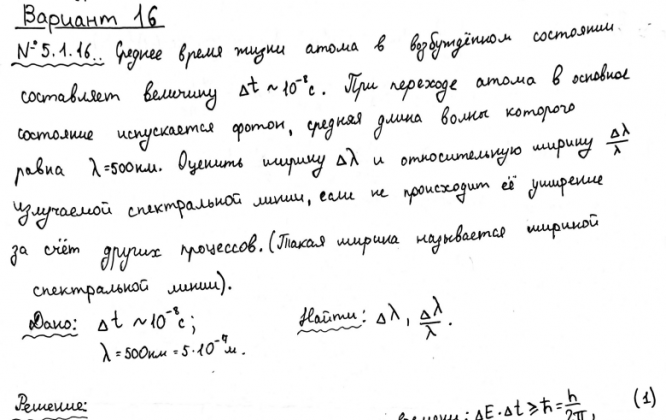 Вариант 16
№5.1.16. Среднее время жизни атома в возбуждённом состоянии
составляет величину Δt ~ 10⁻⁸с. При переходе атома в основное
состояние испускается фотон, средняя длина волны которого
равна λ=500нм. Оценить ширину Δλ и относительную ширину Δλ/λ
излучаемой спектральной линии, если не происходит её уширение
за счёт других процессов. (Такая ширина называется шириной
спектральной линии).
Дано: Δt ~ 10⁻⁸с; Найти: Δλ, Δλ/λ.
λ=500нм = 5·10⁻⁷м.
Решение:
ΔE·Δt ≥ ħ = h/2π, (1)